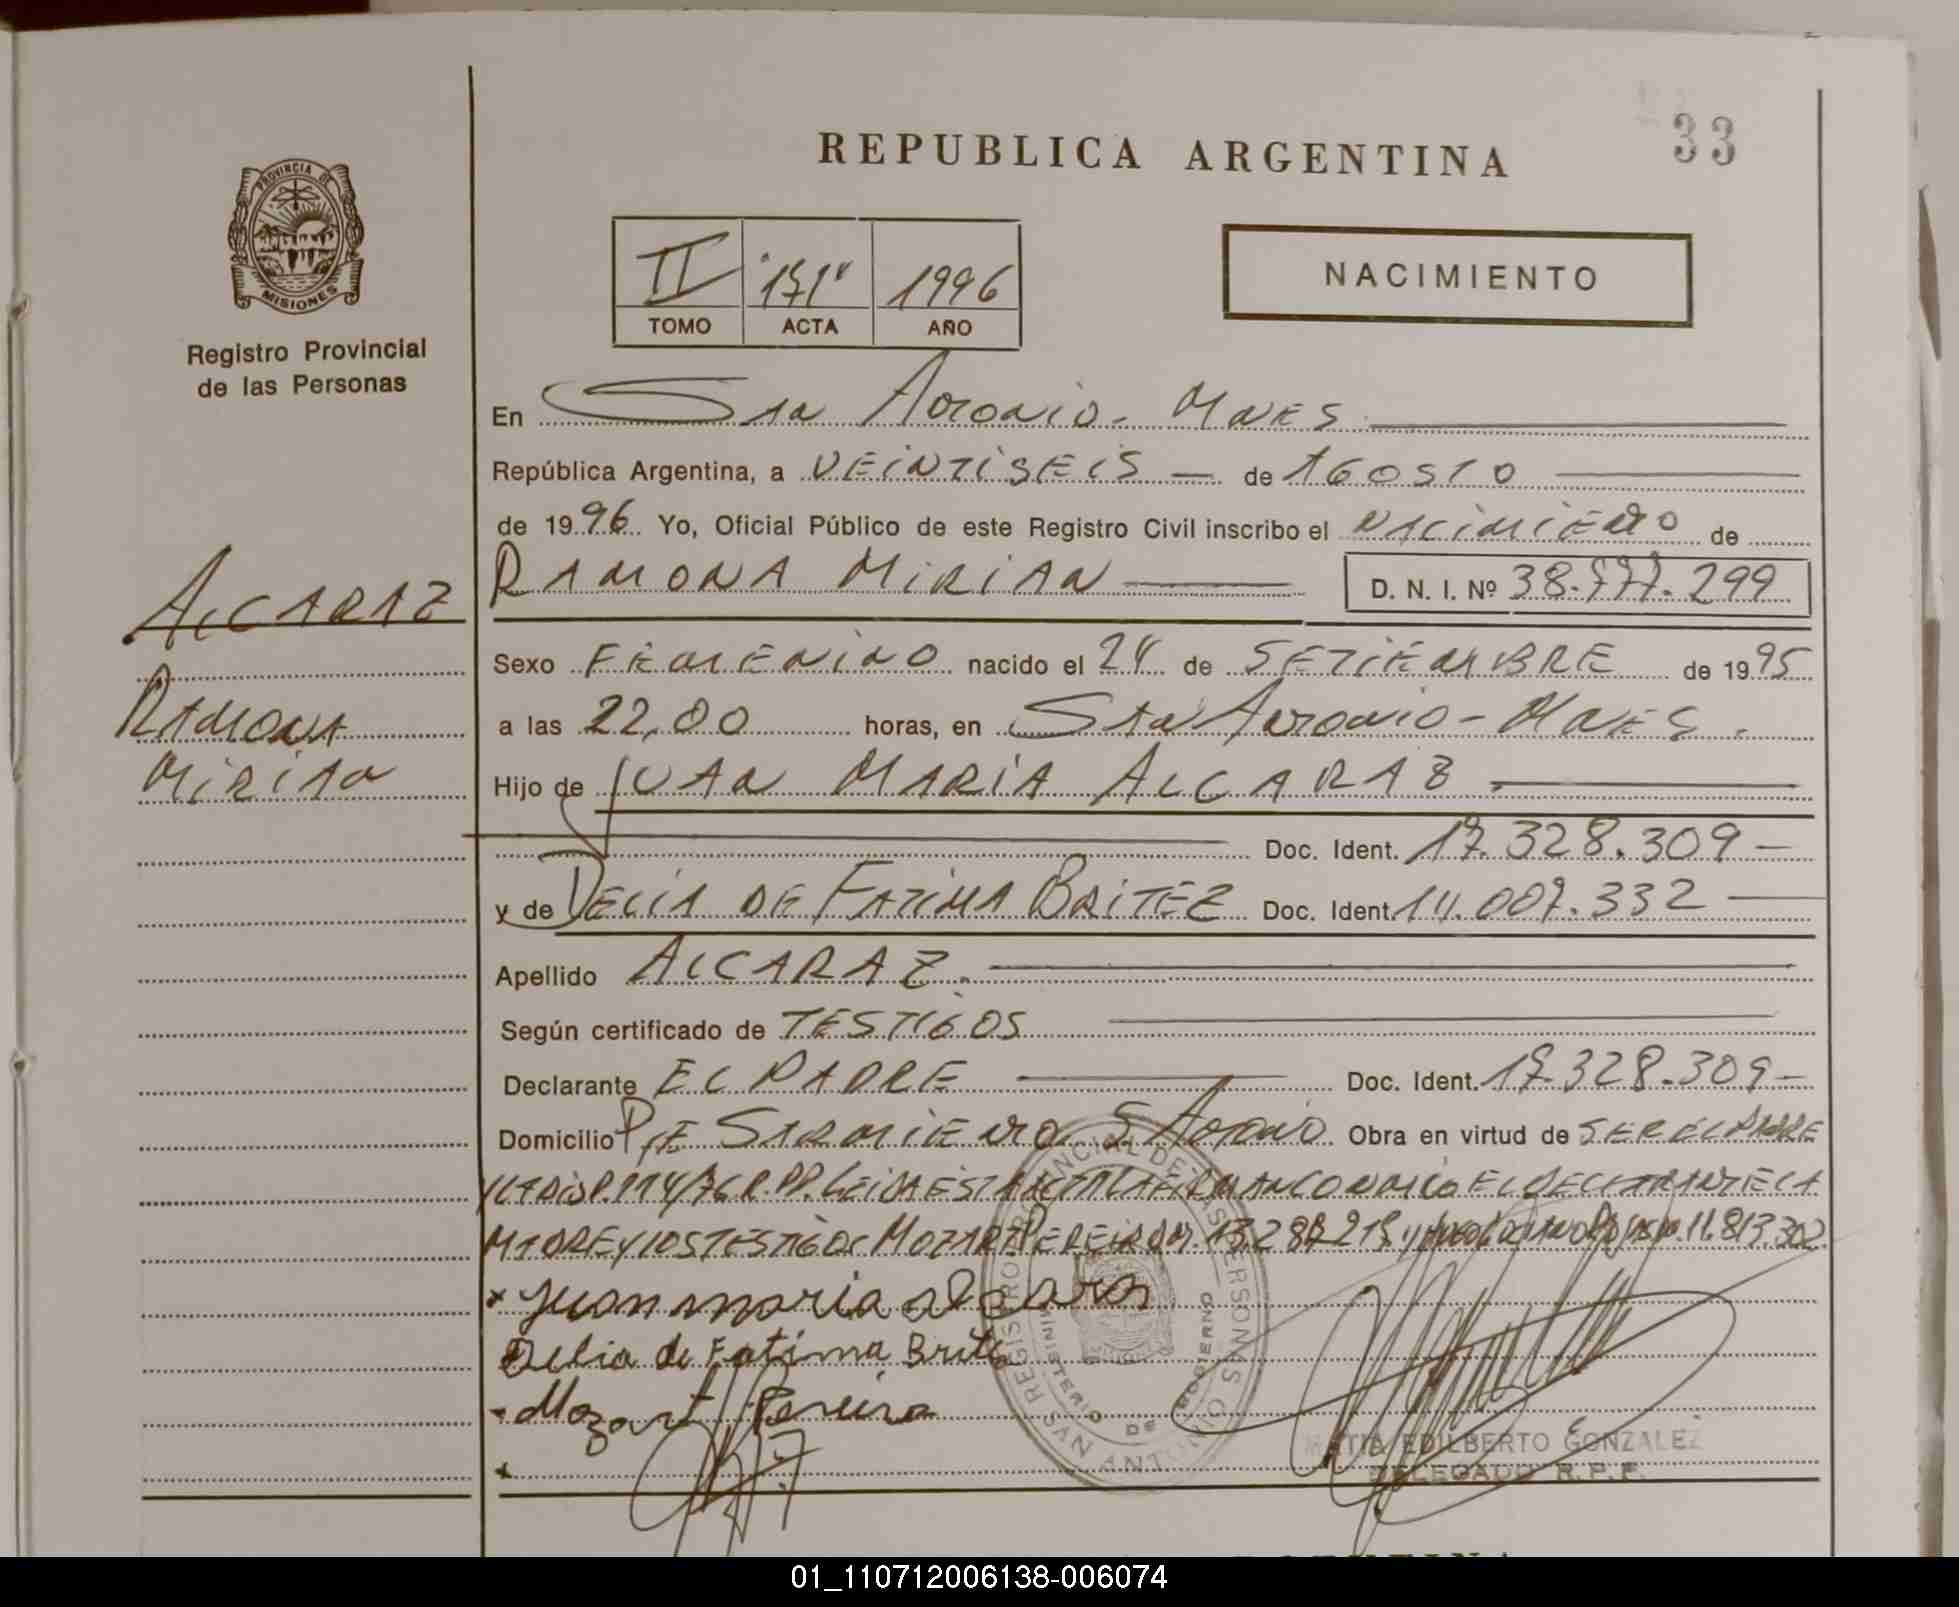 33
REPUBLICA ARGENTINA
PROVINCIA DE
MISIONES
Registro Provincial
de las Personas
II 171 1996
TOMO ACTA AÑO
NACIMIENTO
En San Antonio - Mnes
República Argentina, a VEINTISEIS de AGOSTO
de 1996 Yo, Oficial Público de este Registro Civil inscribo el NACIMIENTO de
ALCARAZ
RAMONA MIRIAN
D. N. I. Nº 38.777.299
RAMONA
MIRIAN
Sexo FEMENINO nacido el 24 de SETIEMBRE de 1995
a las 22,00 horas, en San Antonio - Mnes.
Hijo de JUAN MARIA ALCARAZ
Doc. Ident. 17.328.309
y de DELIA DE FATIMA BRITEZ Doc. Ident. 14.007.332
Apellido ALCARAZ.
Según certificado de TESTIGOS
Declarante EL PADRE Doc. Ident. 17.328.309
Domicilio Pje SARMIENTO S. Antonio Obra en virtud de SER EL PADRE
Y LA DISP. 114/76 R.P.P. LEIDA ESTA ACTA LA FIRMAN CONMIGO EL DECLARANTE LA
MADRE Y LOS TESTIGOS MOZART PEREIRA 11.813.302
x Juan maria alcaras
Delia de Fatima Brite
- Mozart Pereira
x
REGISTRO PROVINCIAL DE LAS PERSONAS
MINISTERIO DE GOBIERNO
SAN ANTONIO
EDILBERTO GONZALEZ
DELEGADO R.P.P.
01_110712006138-006074